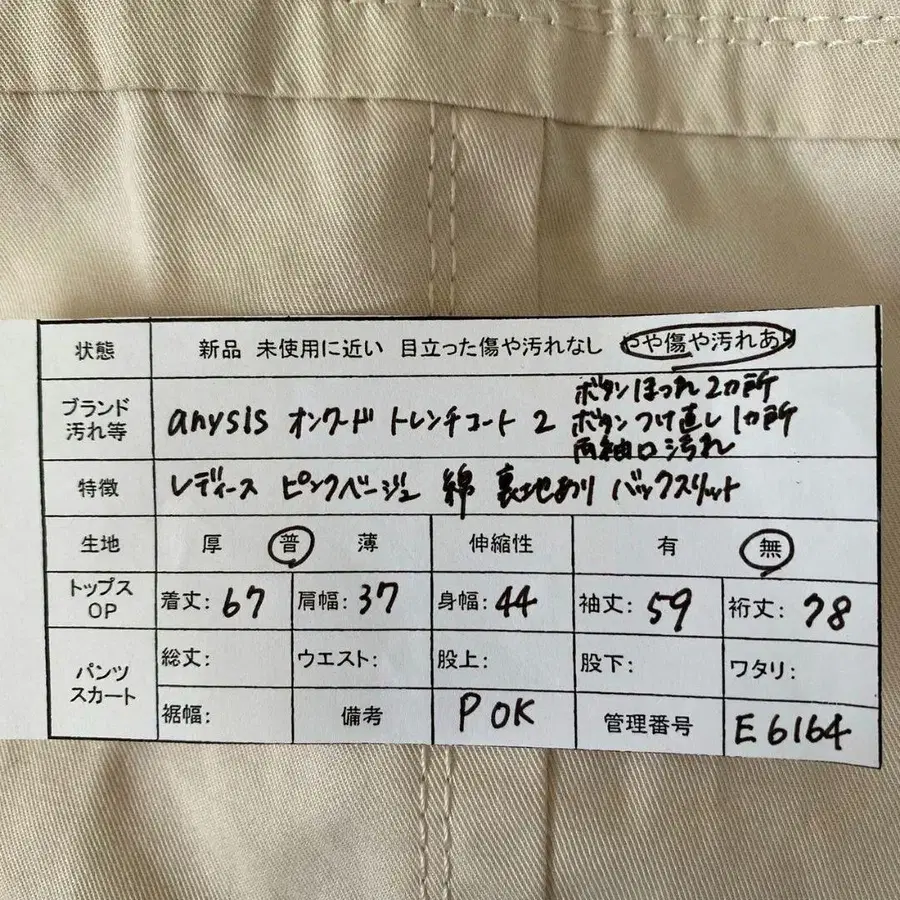 状態 新品 未使用に近い 目立った傷や汚れなし やや傷や汚れあり
ブランド
汚れ等
anysis オンワード トレンチコート 2
ボタンほつれ2カ所
ボタンつけ直し1カ所
両袖口汚れ
特徴 レディース ピンクベージュ 綿 裏地あり バックスリット
生地 厚 普 薄 伸縮性 有 無
トップス
OP
着丈: 67 肩幅: 37 身幅: 44 袖丈: 59 裄丈: 78
パンツ
スカート
総丈: ウエスト: 股上: 股下: ワタリ:
裾幅: 備考 P OK 管理番号 E6164